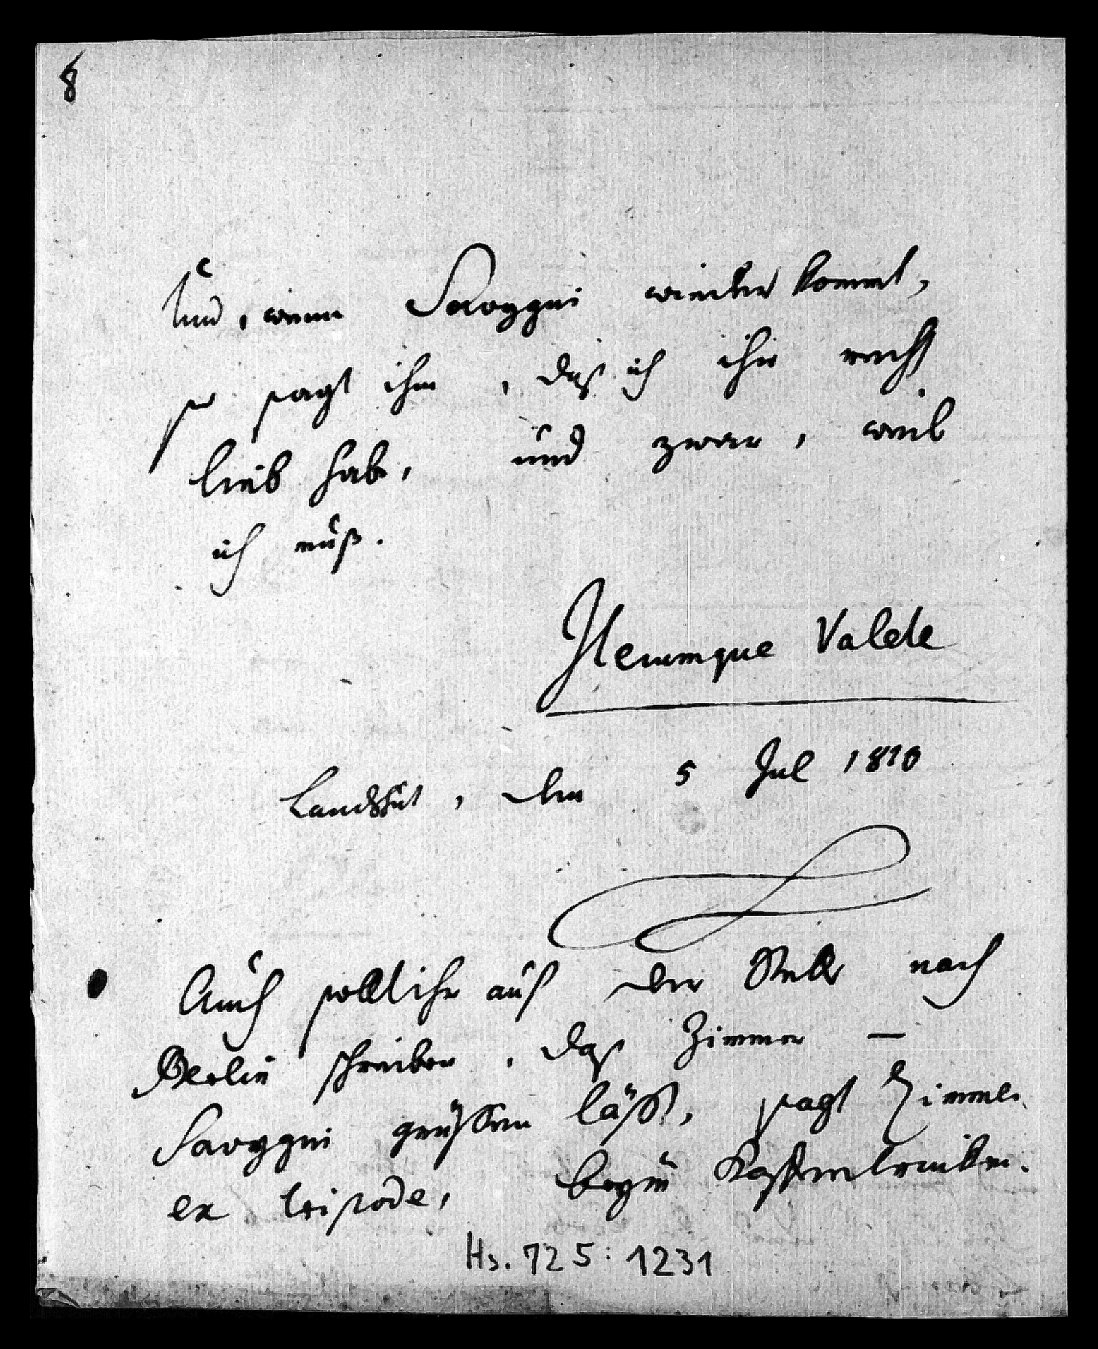 8
Und, wenn Savygni wiederkommt,
so sagt ihm, daß ich ihn recht
lieb hab, und zwar, weil
ich muß.
Iterumque Valete
Landshut, den 5 Jul 1810
Auch sollt ihr auf der Stelle nach
Berlin schreiben, daß Zimmer —
Savygni grüßen läßt, sagt Zimmer
ex tripode, beym Kaffeetrinken.
Hs. 725: 1231